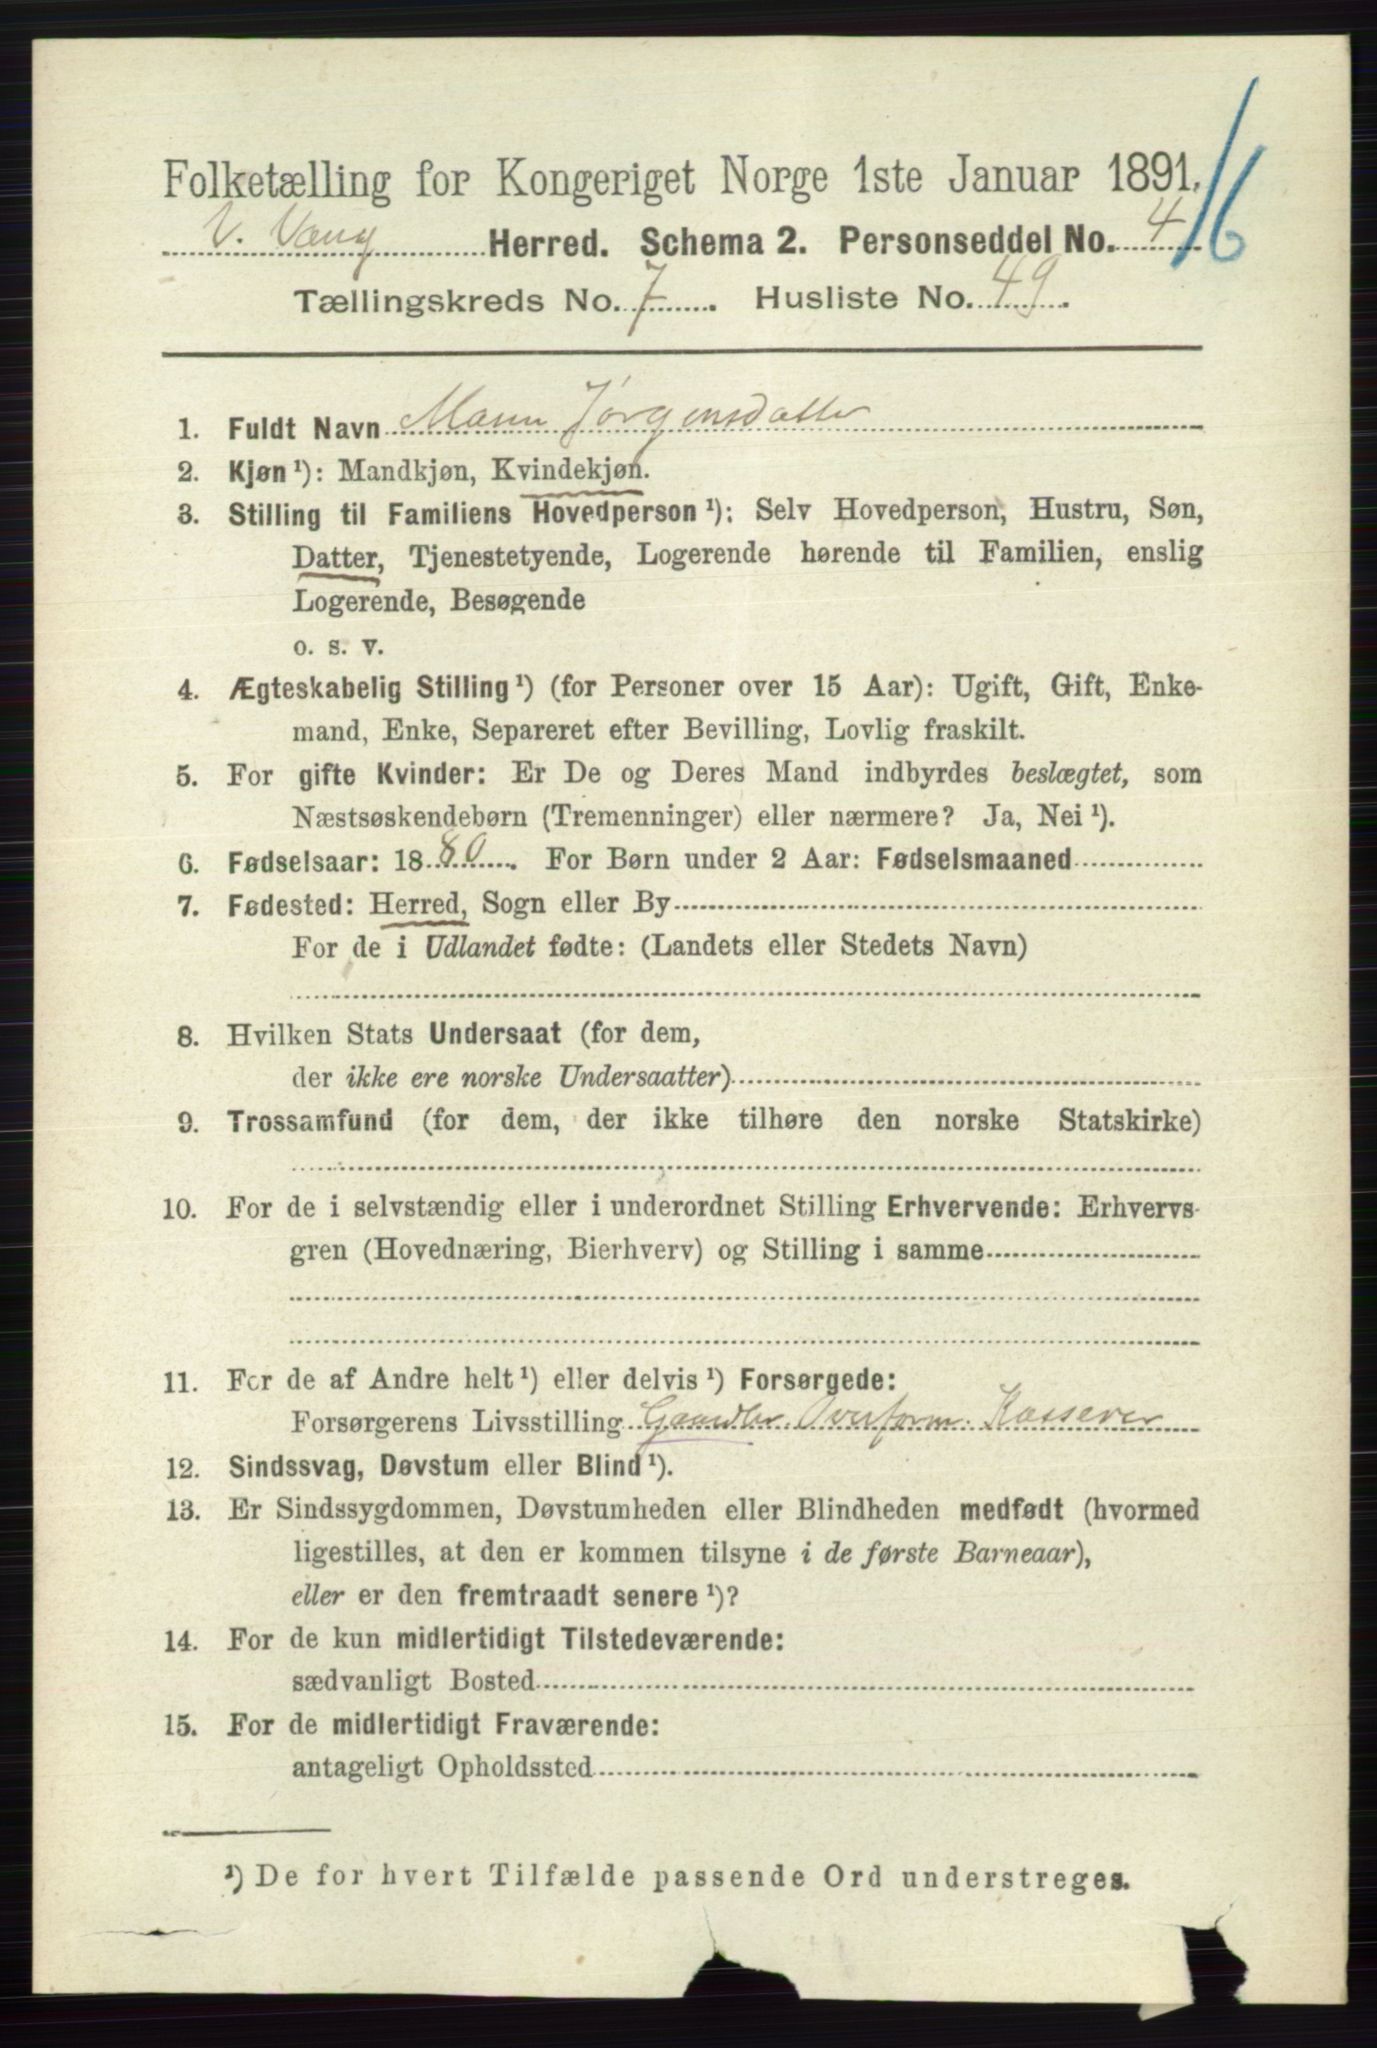 Folketælling for Kongeriget Norge 1ste Januar 1891.
16
V. Vang Herred. Schema 2. Personseddel No. 4
Tællingskreds No. 7. Husliste No. 49.
1. Fuldt Navn Maren Jørgensdatter
2. Kjøn ¹): Mandkjøn, Kvindekjøn.
3. Stilling til Familiens Hovedperson ¹): Selv Hovedperson, Hustru, Søn,
Datter, Tjenestetyende, Logerende hørende til Familien, enslig
Logerende, Besøgende
o. s. v.
4. Ægteskabelig Stilling ¹) (for Personer over 15 Aar): Ugift, Gift, Enke-
mand, Enke, Separeret efter Bevilling, Lovlig fraskilt.
5. For gifte Kvinder: Er De og Deres Mand indbyrdes beslægtet, som
Næstsøskendebørn (Tremenninger) eller nærmere? Ja, Nei ¹).
6. Fødselsaar: 1880. For Børn under 2 Aar: Fødselsmaaned
7. Fødested: Herred, Sogn eller By
For de i Udlandet fødte: (Landets eller Stedets Navn)
8. Hvilken Stats Undersaat (for dem,
der ikke ere norske Undersaatter)
9. Trossamfund (for dem, der ikke tilhøre den norske Statskirke)
10. For de i selvstændig eller i underordnet Stilling Erhvervende: Erhvervs-
gren (Hovednæring, Bierhverv) og Stilling i samme
11. For de af Andre helt ¹) eller delvis ¹) Forsørgede:
Forsørgerens Livsstilling Gaardbr. Overform. Kasserer
12. Sindssvag, Døvstum eller Blind ¹).
13. Er Sindssygdommen, Døvstumheden eller Blindheden medfødt (hvormed
ligestilles, at den er kommen tilsyne i de første Barneaar),
eller er den fremtraadt senere ¹)?
14. For de kun midlertidigt Tilstedeværende:
sædvanligt Bosted
15. For de midlertidigt Fraværende:
antageligt Opholdssted
¹) De for hvert Tilfælde passende Ord understreges.